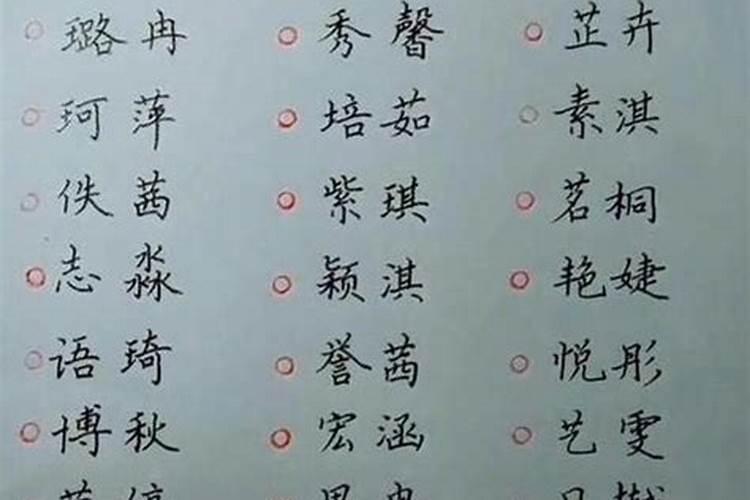 璐冉 秀馨 芷卉
珂萍 培茹 素淇
佚茜 紫琪 茗桐
志淼 颖淇 艳婕
语琦 誉茜 悦彤
博秋 宏涵 艺雯